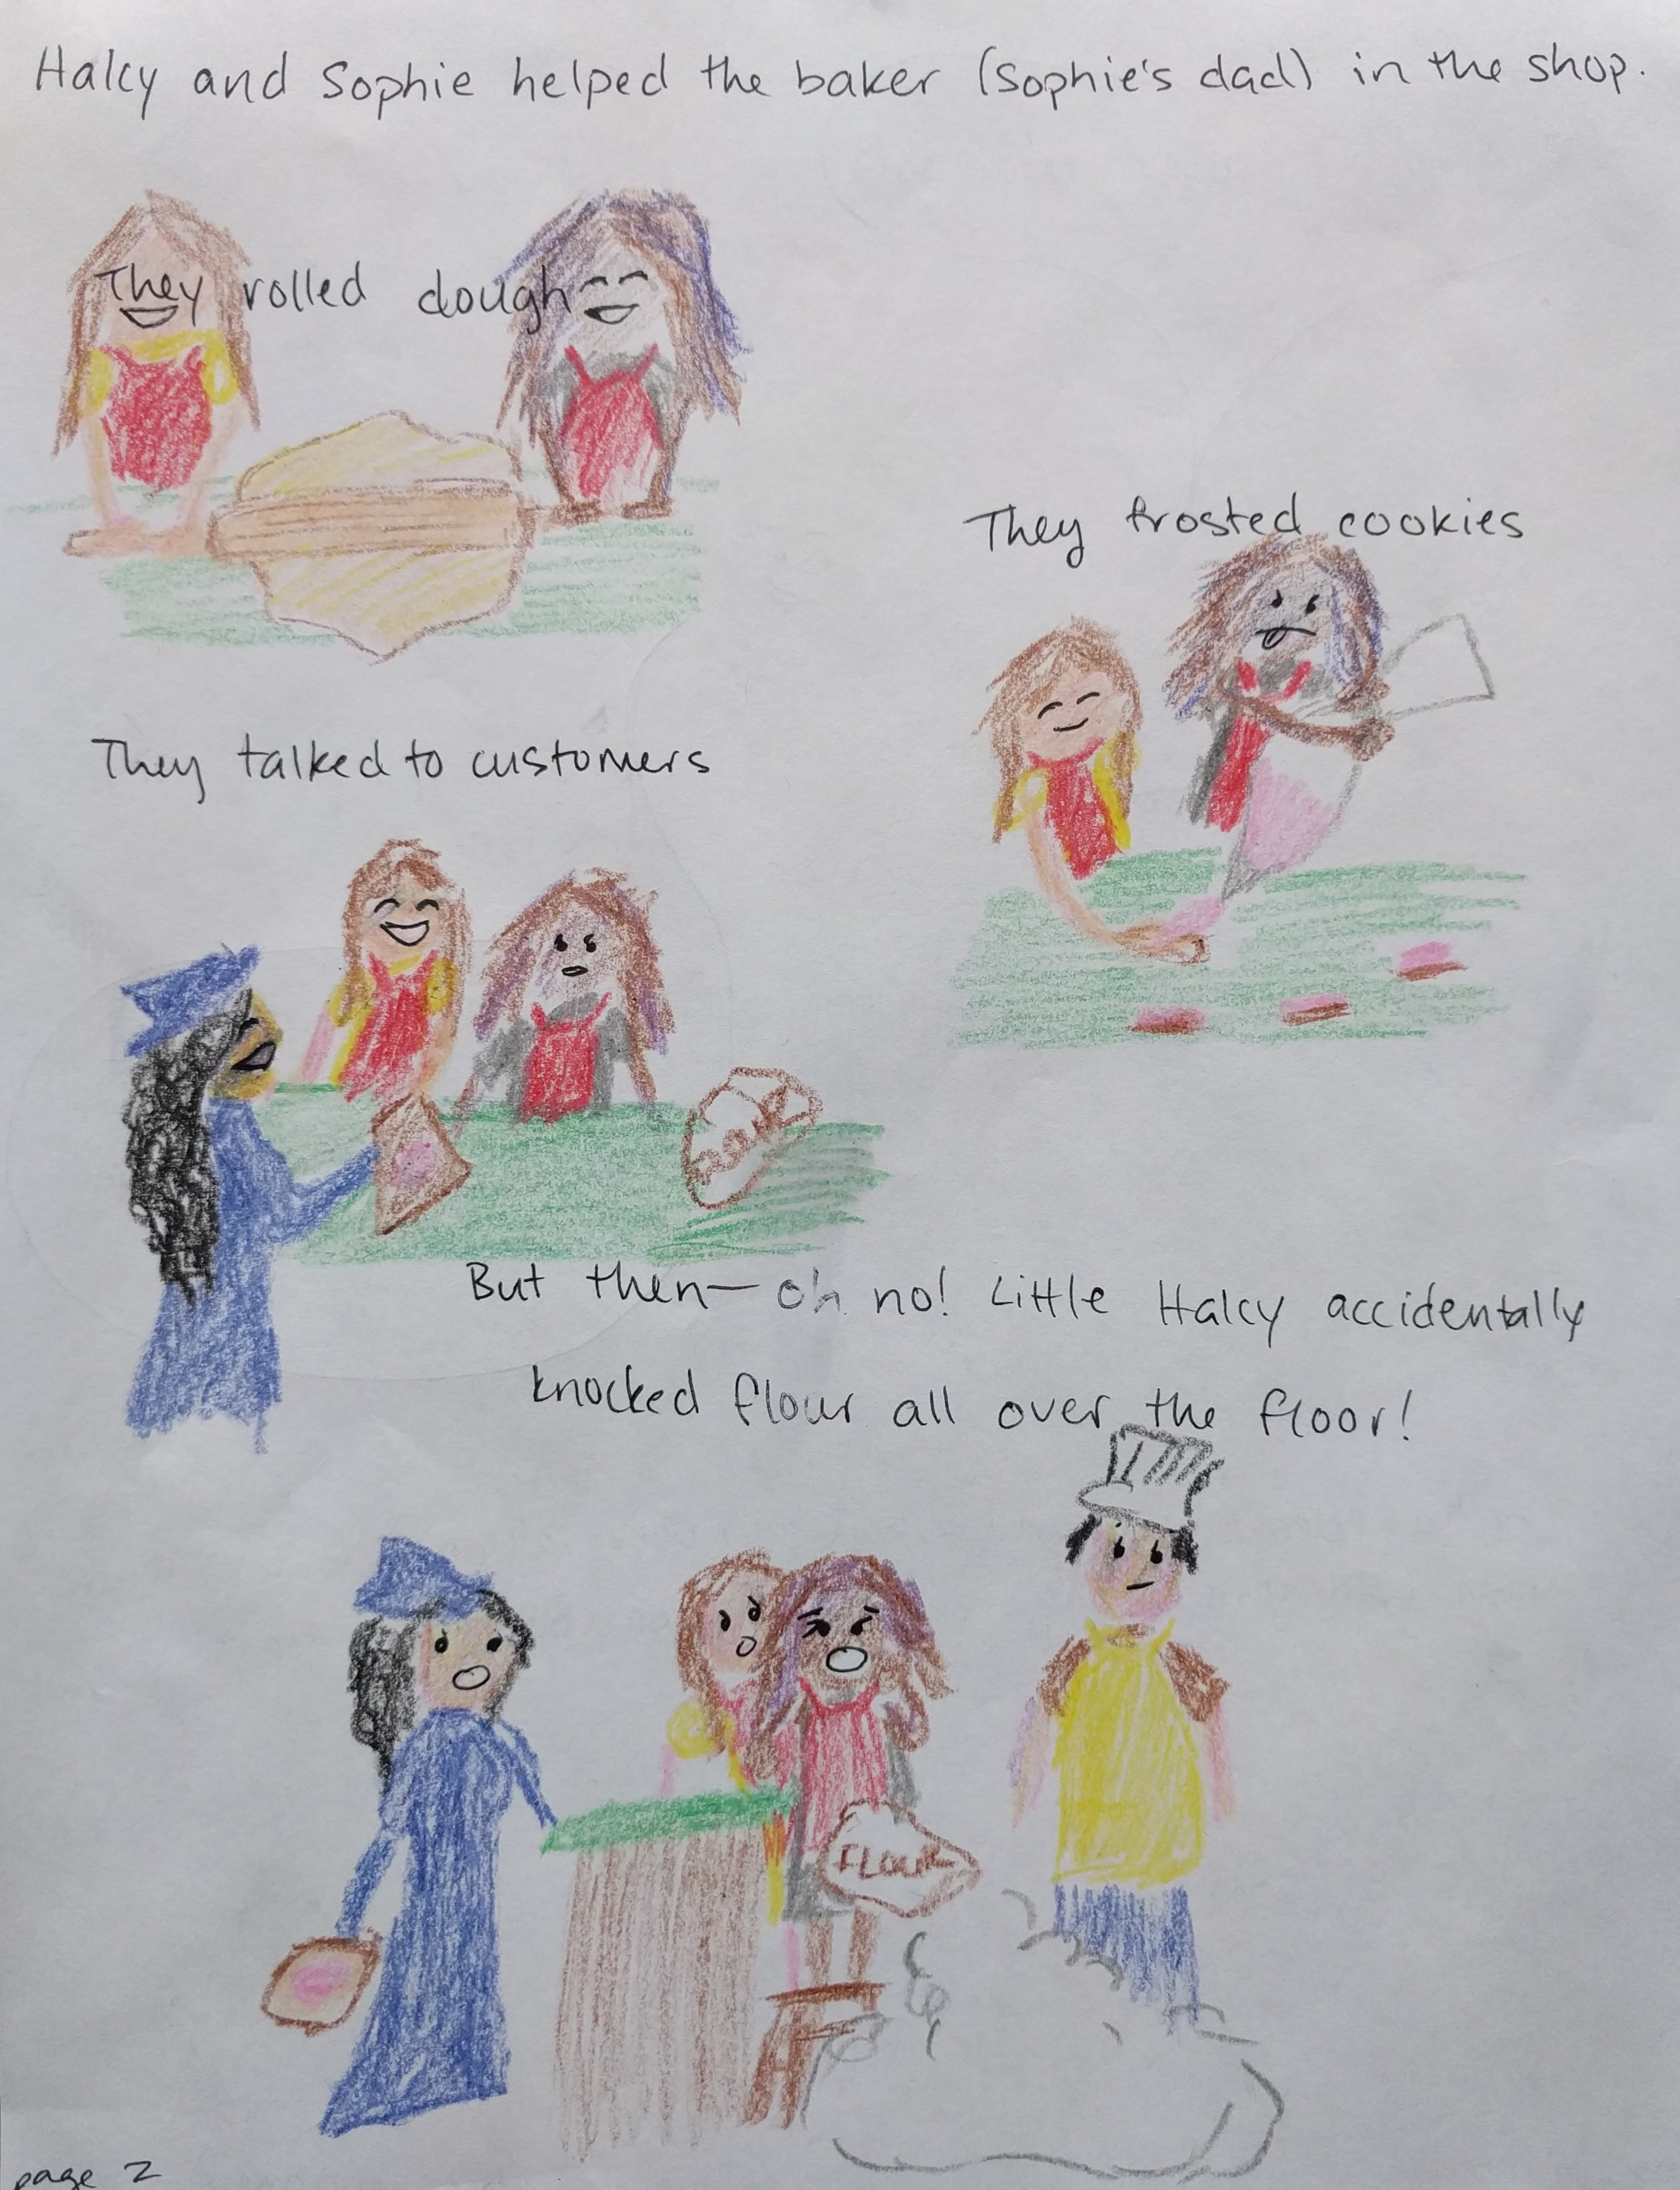 Halcy and Sophie helped the baker (Sophie's dad) in the shop.
They rolled dough
They frosted cookies
They talked to customers
But then— oh no! Little Halcy accidentally
knocked flour all over the floor!
FLOUR
page 2